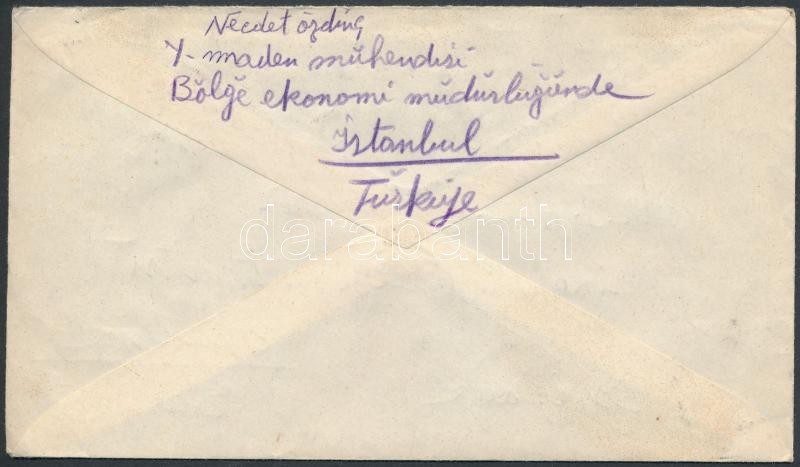 Necdet özdinç
Y. maden mühendisi
Bölge ekonomi müdürlüğünde
İstanbul
Türkiye
darabanth